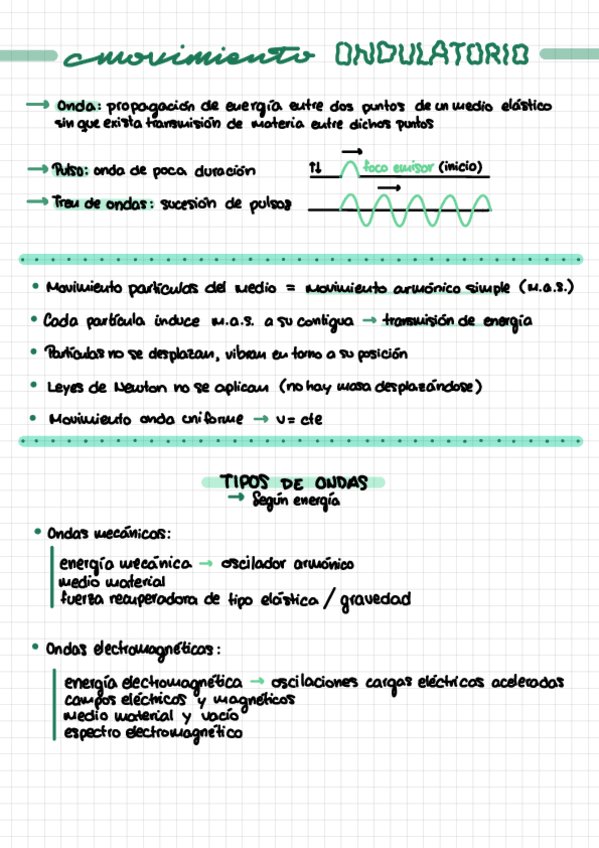 movimiento ONDULATORIO
→ Onda: propagación de energía entre dos puntos de un medio elástico
sin que exista transmisión de materia entre dichos puntos
→ Pulso: onda de poca duración
↑↓ foco emisor (inicio)
→ Tren de ondas: sucesión de pulsos
• Movimiento partículas del medio = movimiento armónico simple (m.a.s.)
• Cada partícula induce m.a.s. a su contigua → transmisión de energía
• Partículas no se desplazan, vibran en torno a su posición
• Leyes de Newton no se aplican (no hay masa desplazándose)
• Movimiento onda uniforme → v = cte
TIPOS DE ONDAS
→ Según energía
• Ondas mecánicas:
energía mecánica → oscilador armónico
medio material
fuerza recuperadora de tipo elástica / gravedad
• Ondas electromagnéticas:
energía electromagnética → oscilaciones cargas eléctricas aceleradas
campos eléctricos y magnéticos
medio material y vacío
espectro electromagnético